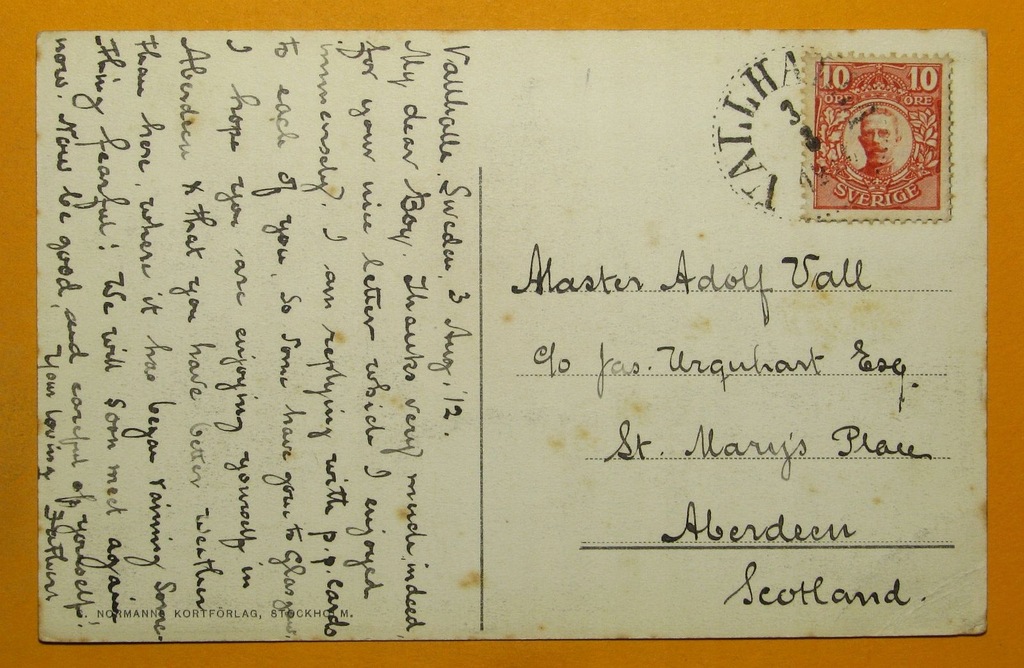 Vallhalle, Sweden, 3 Aug, '12.
My dear Boy. Thanks very much indeed
for your nice letter which I enjoyed
immensely. I am replying with p.p. cards
to each of you. So some have gone to Glasgow.
I hope you are enjoying yourself in
Aberdeen & that you have better weather
than here, where it has began raining some-
thing fearful! We will soon meet again
now. Now be good, and careful of yourself.
Your loving Father
NORMANNS KORTFÖRLAG, STOCKHOLM.
VALLHA
10 10
ÖRE ÖRE
SVERIGE
Master Adolf Vall
c/o Jas. Urquhart Esq.
St. Mary's Place
Aberdeen
Scotland.